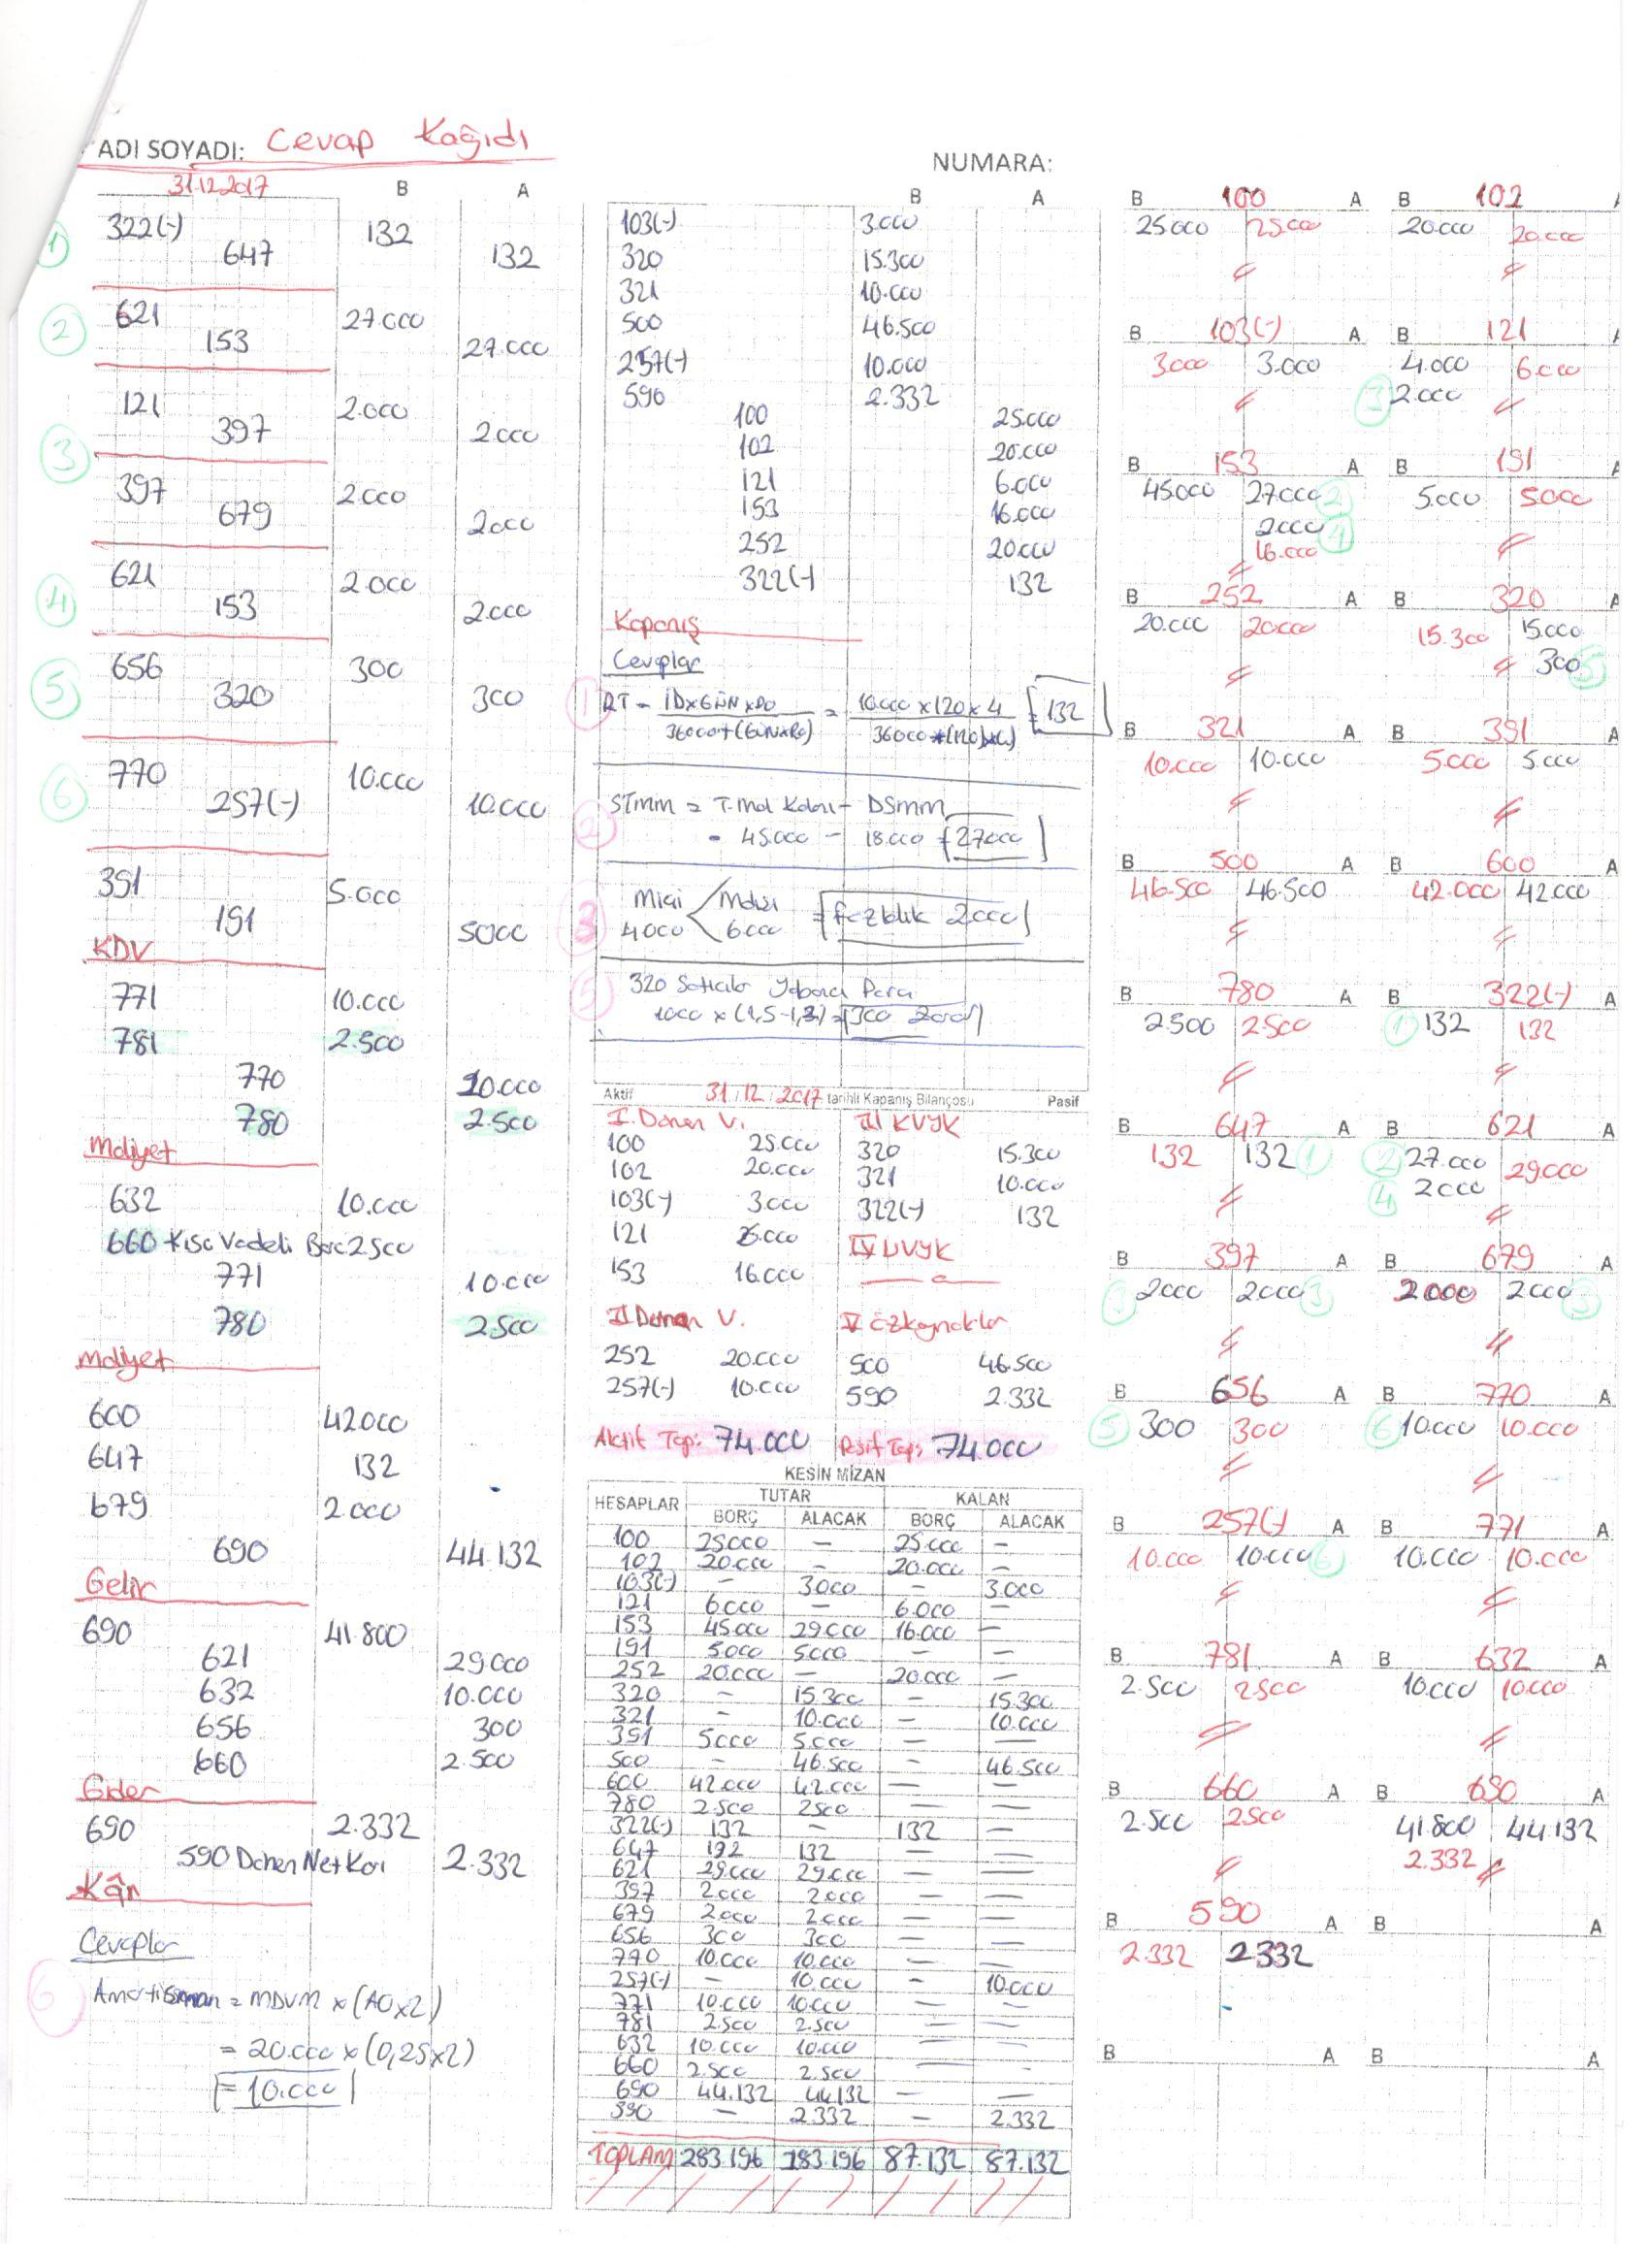 ADI SOYADI: Cevap Kağıdı
NUMARA:
31.12.2017 B A
1 322(-) 132
647 132
2 621 27.000
153 27.000
3 121 2.000
397 2.000
397 2.000
679 2.000
4 621 2.000
153 2.000
5 656 300
320 300
6 770 10.000
257(-) 10.000
391 5.000
191 5000
KDV
771 10.000
781 2.500
770 10.000
780 2.500
Maliyet
632 10.000
660 Kısa Vadeli Borc 2500
771 10.000
780 2500
Maliyet
600 42.000
647 132
679 2.000
690 44.132
Gelir
690 41.800
621 29.000
632 10.000
656 300
660 2.500
Gider
690 2.332
590 Dönem Net Karı 2.332
Kâr
Cevaplar
6 Amortisman = MDVM x (AO x 2)
= 20.000 x (0,25x2)
= 10.000
B A
103(-) 3.000
320 15.300
321 10.000
500 46.500
257(-) 10.000
590 2.332
100 25.000
102 20.000
121 6.000
153 16.000
252 20.000
322(-) 132
Kapanış
Cevaplar
1 RT = İDxGÜNxRO / 36000+(GÜNxRO) = 10.000 x 120 x 4 / 36000+(120x4) = 132
2 STMM = T. Mal Kalanı - DSMM
= 45.000 - 18.000 = 27.000
3 Mizai 4000 < Mali 6.000 = Fazlalık 2.000
5 320 Satıcılar Yabancı Para
1000 x (1,5-1,2) = 300 zarar
Aktif 31/12/2017 tarihli Kapanış Bilançosu Pasif
I. Dönen V. III KVYK
100 25.000 320 15.300
102 20.000 321 10.000
103(-) 3.000 322(-) 132
121 6.000 IV UVYK
153 16.000 — o —
II Duran V. V Özkaynaklar
252 20.000 500 46.500
257(-) 10.000 590 2.332
Aktif Top: 74.000 Pasif Top: 74.000
KESİN MİZAN
HESAPLAR TUTAR KALAN
BORÇ ALACAK BORÇ ALACAK
100 25000 — 25.000 —
102 20.000 — 20.000 —
103(-) — 3000 — 3.000
121 6.000 — 6.000 —
153 45000 29.000 16.000 —
191 5000 5000 — —
252 20.000 — 20.000 —
320 — 15.300 — 15.300
321 — 10.000 — 10.000
391 5000 5.000 — —
500 — 46.500 — 46.500
600 42.000 42.000 — —
780 2.500 2500 — —
322(-) 132 — 132 —
647 132 132 — —
621 29.000 29.000 — —
397 2.000 2.000 — —
679 2.000 2.000 — —
656 300 300 — —
770 10.000 10.000 — —
257(-) — 10.000 — 10.000
771 10.000 10.000 — —
781 2.500 2.500 — —
632 10.000 10.000 — —
660 2.500 2.500 — —
690 44.132 44.132 — —
590 — 2.332 — 2.332
TOPLAM 283.196 283.196 87.132 87.132
B 100 A B 102 A
25.000 25.000 20.000 20.000
B 103(-) A B 121 A
3.000 3.000 4.000 6.000
3 2.000
B 153 A B 191 A
45.000 27.000 2 5.000 5.000
2.000 4
16.000
B 252 A B 320 A
20.000 20.000 15.300 15.000
300 5
B 321 A B 391 A
10.000 10.000 5.000 5.000
B 500 A B 600 A
46.500 46.500 42.000 42.000
B 780 A B 322(-) A
2.500 2.500 1 132 132
B 647 A B 621 A
132 132 1 2 27.000 29.000
4 2.000
B 397 A B 679 A
3 2.000 2.000 3 2.000 2.000 3
B 656 A B 770 A
5 300 300 6 10.000 10.000
B 257(-) A B 771 A
10.000 10.000 6 10.000 10.000
B 781 A B 632 A
2.500 2.500 10.000 10.000
B 660 A B 690 A
2.500 2500 41.800 44.132
2.332
B 590 A B A
2.332 2.332
B A B A